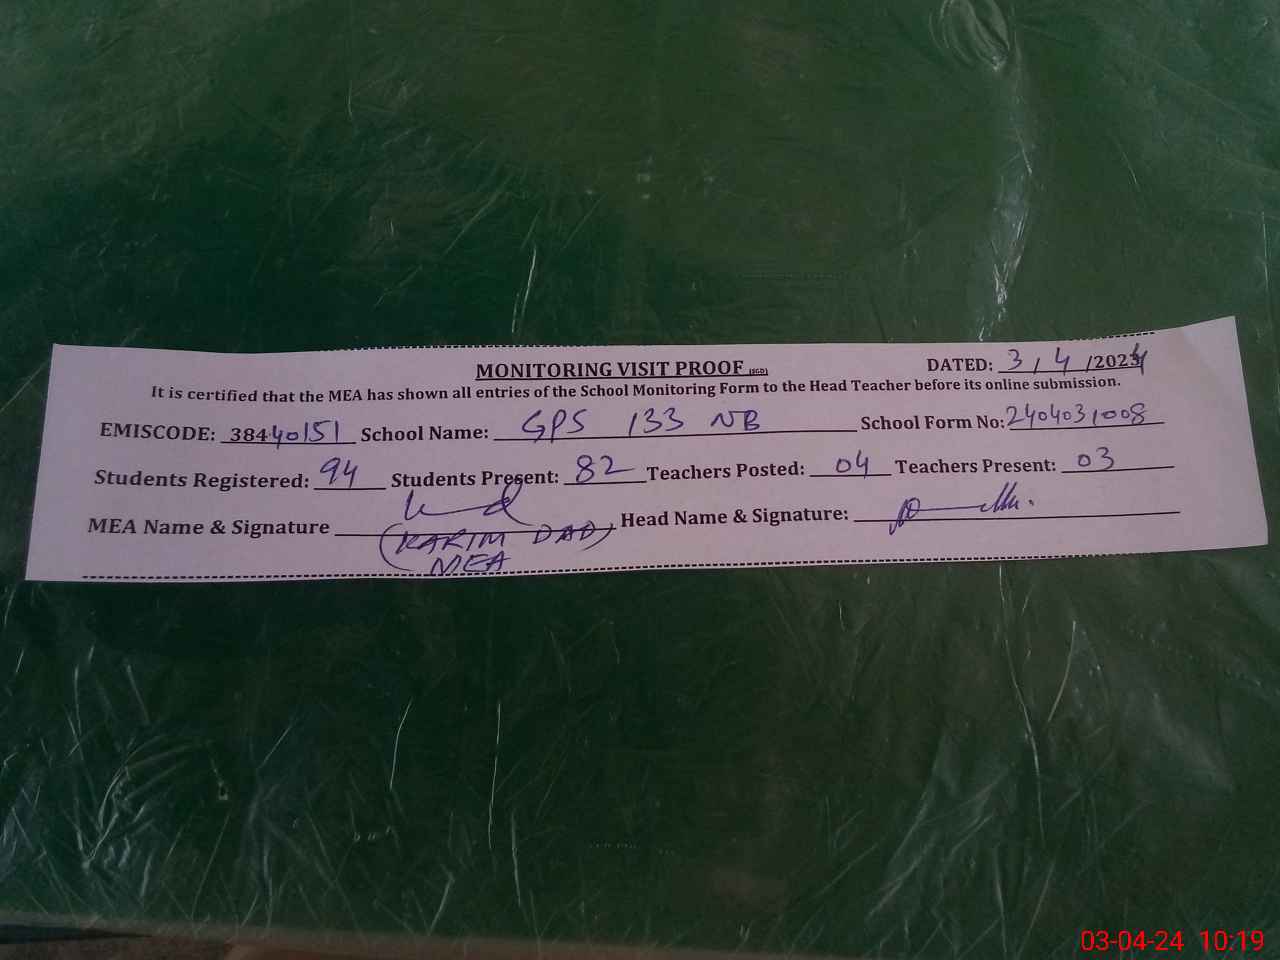 MONITORING VISIT PROOF (SGD) DATED: 3/4/2024
It is certified that the MEA has shown all entries of the School Monitoring Form to the Head Teacher before its online submission.
EMISCODE: 38440151 School Name: GPS 133 NB School Form No: 2404031008
Students Registered: 94 Students Present: 82 Teachers Posted: 04 Teachers Present: 03
MEA Name & Signature Head Name & Signature:
(KARIM DAD)
MEA
03-04-24 10:19